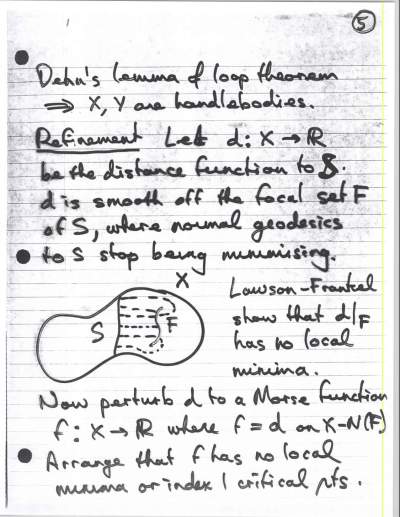 5
Dehn's lemma & loop theorem
⇒ X, Y are handlebodies.
Refinement Let d: X → ℝ
be the distance function to S.
d is smooth off the focal set F
of S, where normal geodesics
to S stop being minimising.
X
S
F
Lawson-Frankel
show that d|F
has no local
minima.
Now perturb d to a Morse function
f: X → ℝ where f = d on X-N(F)
Arrange that f has no local
minima or index 1 critical pts.